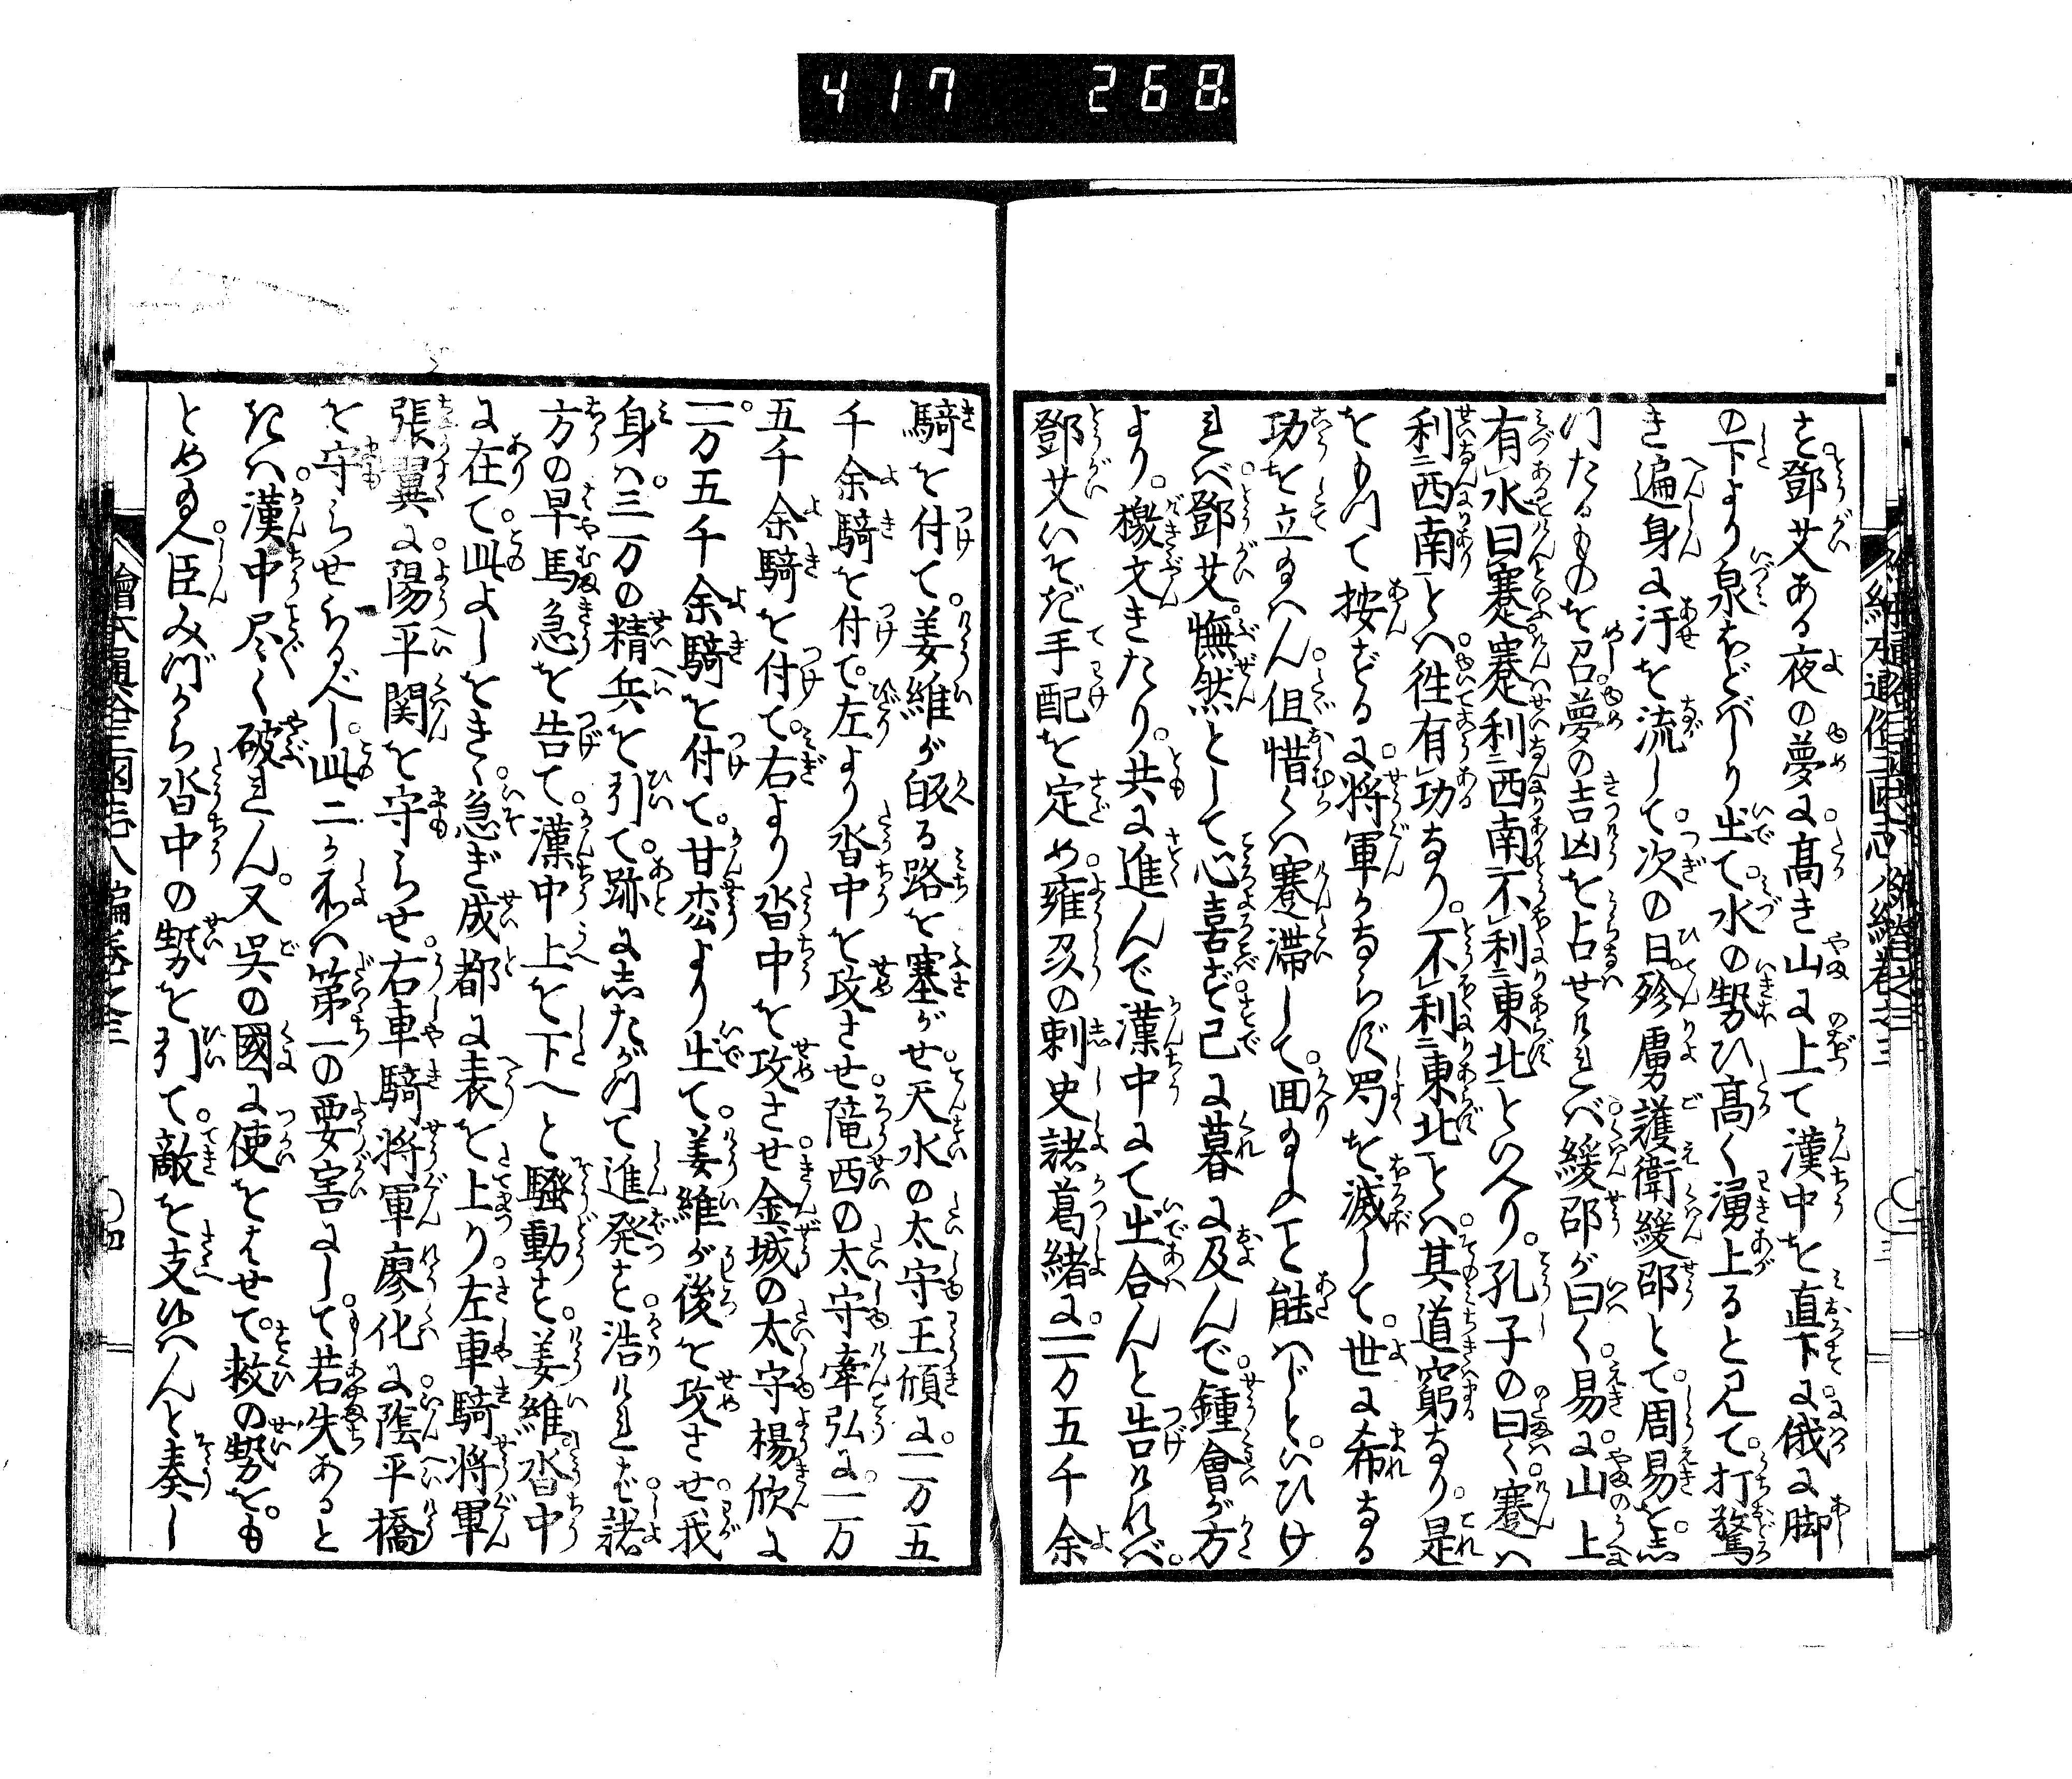 417 268
す。鄧艾ある夜の夢に高き山に上て漢中を直下に俄に脚
の下より泉ほどばしり出て。水の勢ひ高く湧上ると見て。打驚
き遍身に汗を流して次の日殄虜護衛緩邵とて。周易を志
つたるものを召夢の吉凶を占せければ緩邵が曰く易に山上
有水曰蹇蹇利二西南一不利二東北一といへり。孔子の曰く蹇は
利二西南一とは。往有功なり。不利二東北一とは其道窮なり是
をもつて按ずるに。将軍かならず蜀を滅して。世に希なる
功を立給はん。但惜らくは蹇滞して。回給ふこと能はじと。いひけ
れば鄧艾。憮然として心喜ず已に暮に及んで。鍾會が方
より。檄文きたり。共に進んで漢中にて出合んと告ければ。
鄧艾いそぎ手配を定め。雍州の刺史諸葛緒に。一万五千余
騎を付て。姜維が皈る路を塞がせ。天水の太守王頎に。一万五
千余騎を付て。左より沓中を攻させ。隴西の太守牽弘に。一万
五千余騎を付て。右より沓中を攻させ。金城の太守楊欣に
一万五千余騎を付て。甘松より出て。姜維が後を攻させ。我
身は三万の精兵を引て。跡に志たがつて進発と。浩ければ。諸
方の早馬急を告て。漢中上を下へと騒動す。姜維。沓中
に在て。此よしをきゝ。急ぎ成都に表を上り。左車騎将軍
張翼に。陽平関を守らせ。右車騎将軍廖化に。陰平橋
を守らせ給ふべし。此二か所は第一の要害にして。若失あると
きは。漢中尽く破れん。又呉の國に使をはせて。救の勢を。も
とめ給へ。臣みづから沓中の勢を引て。敵を支候はんと奏し